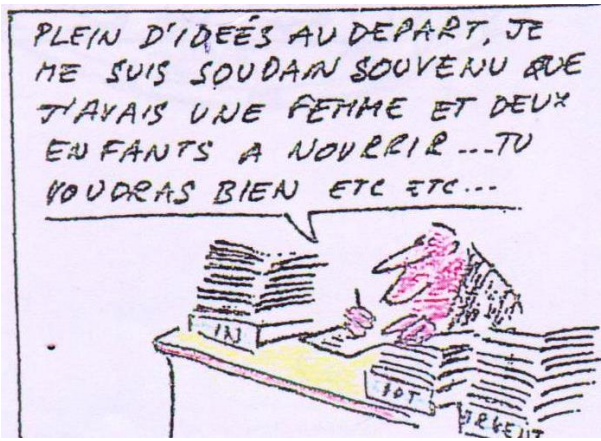 PLEIN D'IDEÉS AU DEPART, JE
ME SUIS SOUDAIN SOUVENU QUE
J'AVAIS UNE FEMME ET DEUX
ENFANTS A NOURRIR...TU
VOUDRAS BIEN ETC ETC...
IN
URGENT